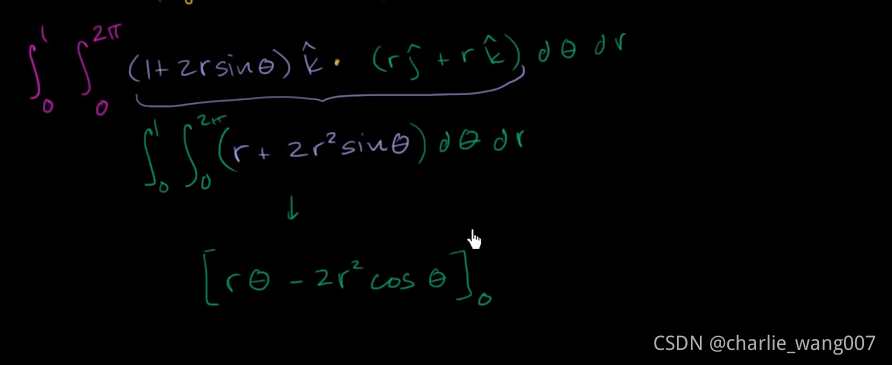 ∫₀¹ ∫₀²ᵖⁱ (1+2rsinθ) k̂ · (rĵ + rk̂) dθ dr
∫₀¹ ∫₀²ᵖⁱ (r + 2r²sinθ) dθ dr
↓
[rθ − 2r² cos θ]₀
CSDN @charlie_wang007